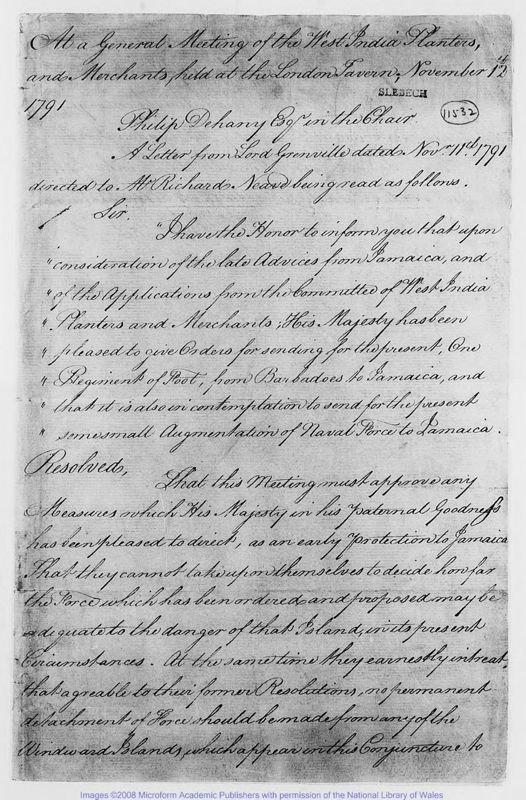 At a General Meeting of the West India Planters,
and Merchants, held at the London Tavern, November 12th
1791
SLEBECH
11532
Philip Dehany Esqr. in the Chair.
A Letter from Lord Grenville dated Novr. 11th 1791
directed to Mr Richard Neave being read as follows.
Sir.
"I have the Honor to inform you that upon
" consideration of the late Advices from Jamaica, and
" of the Applications from the Committee of West India
" Planters and Merchants; His Majesty has been
" pleased to give Orders for sending for the present, One
" Regiment of Foot, from Barbadoes to Jamaica, and
" that it is also in contemplation to send for the present
" some small Augmentation of Naval Force to Jamaica.
Resolved,
That this Meeting must approve any
Measures which His Majesty in his paternal Goodness
has been pleased to direct, as an early protection to Jamaica
That they cannot take upon themselves to decide how far
the Force which has been ordered and proposed may be
adequate to the danger of that Island, in its present
Circumstances. At the same time they earnestly intreat,
that agreable to their former Resolutions, no permanent
detachment of Force should be made from any of the
Windward Islands, which appear in this Conjuncture to
Images ©2008 Microform Academic Publishers with permission of the National Library of Wales